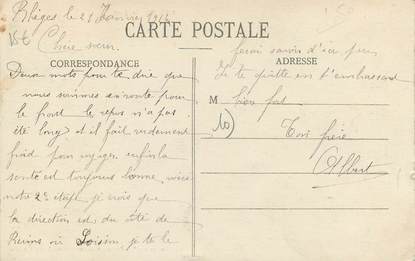 Bliges le 21 Janvier 1915
Chère sœur.
CARTE POSTALE
CORRESPONDANCE
ADRESSE
Deux mots pour te dire que
nous suivons en route pour
le front le repos n'a pas
été long et il fait rudement
froid pour voyager. enfin la
santé est toujours bonne, voici
notre 2e étape je crois que
la direction est du côté de
Reims ou je te le
ferai savoir d'ici peu
Je te quitte en t'embrassant
M bien fort
Ton frère
Albert
10